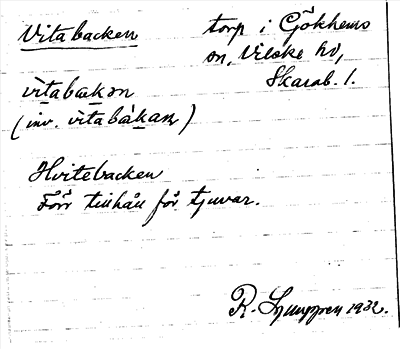 Vitabacken
torp i Gökhems
sn, Vilske hd,
Skarab. l.
vìtabakən
(inv. vìtabàkanˌ)
Hvitebacken
Förr tillhåll för tjuvar.
R. Ljunggren 1932.